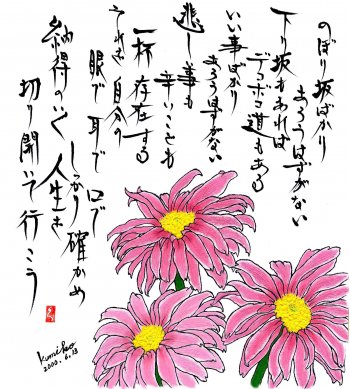 のぼり坂ばかり
あろうはずがない
下り坂もあれば
デコボコ道もある
いい事ばかり
あろうはずがない
悲し事も
辛いことも
一杯存在する
それを自分の
眼で耳で口で
しっかり確かめ
納得のいく人生を
切り開いて行こう
Kumiko
2000.6.13